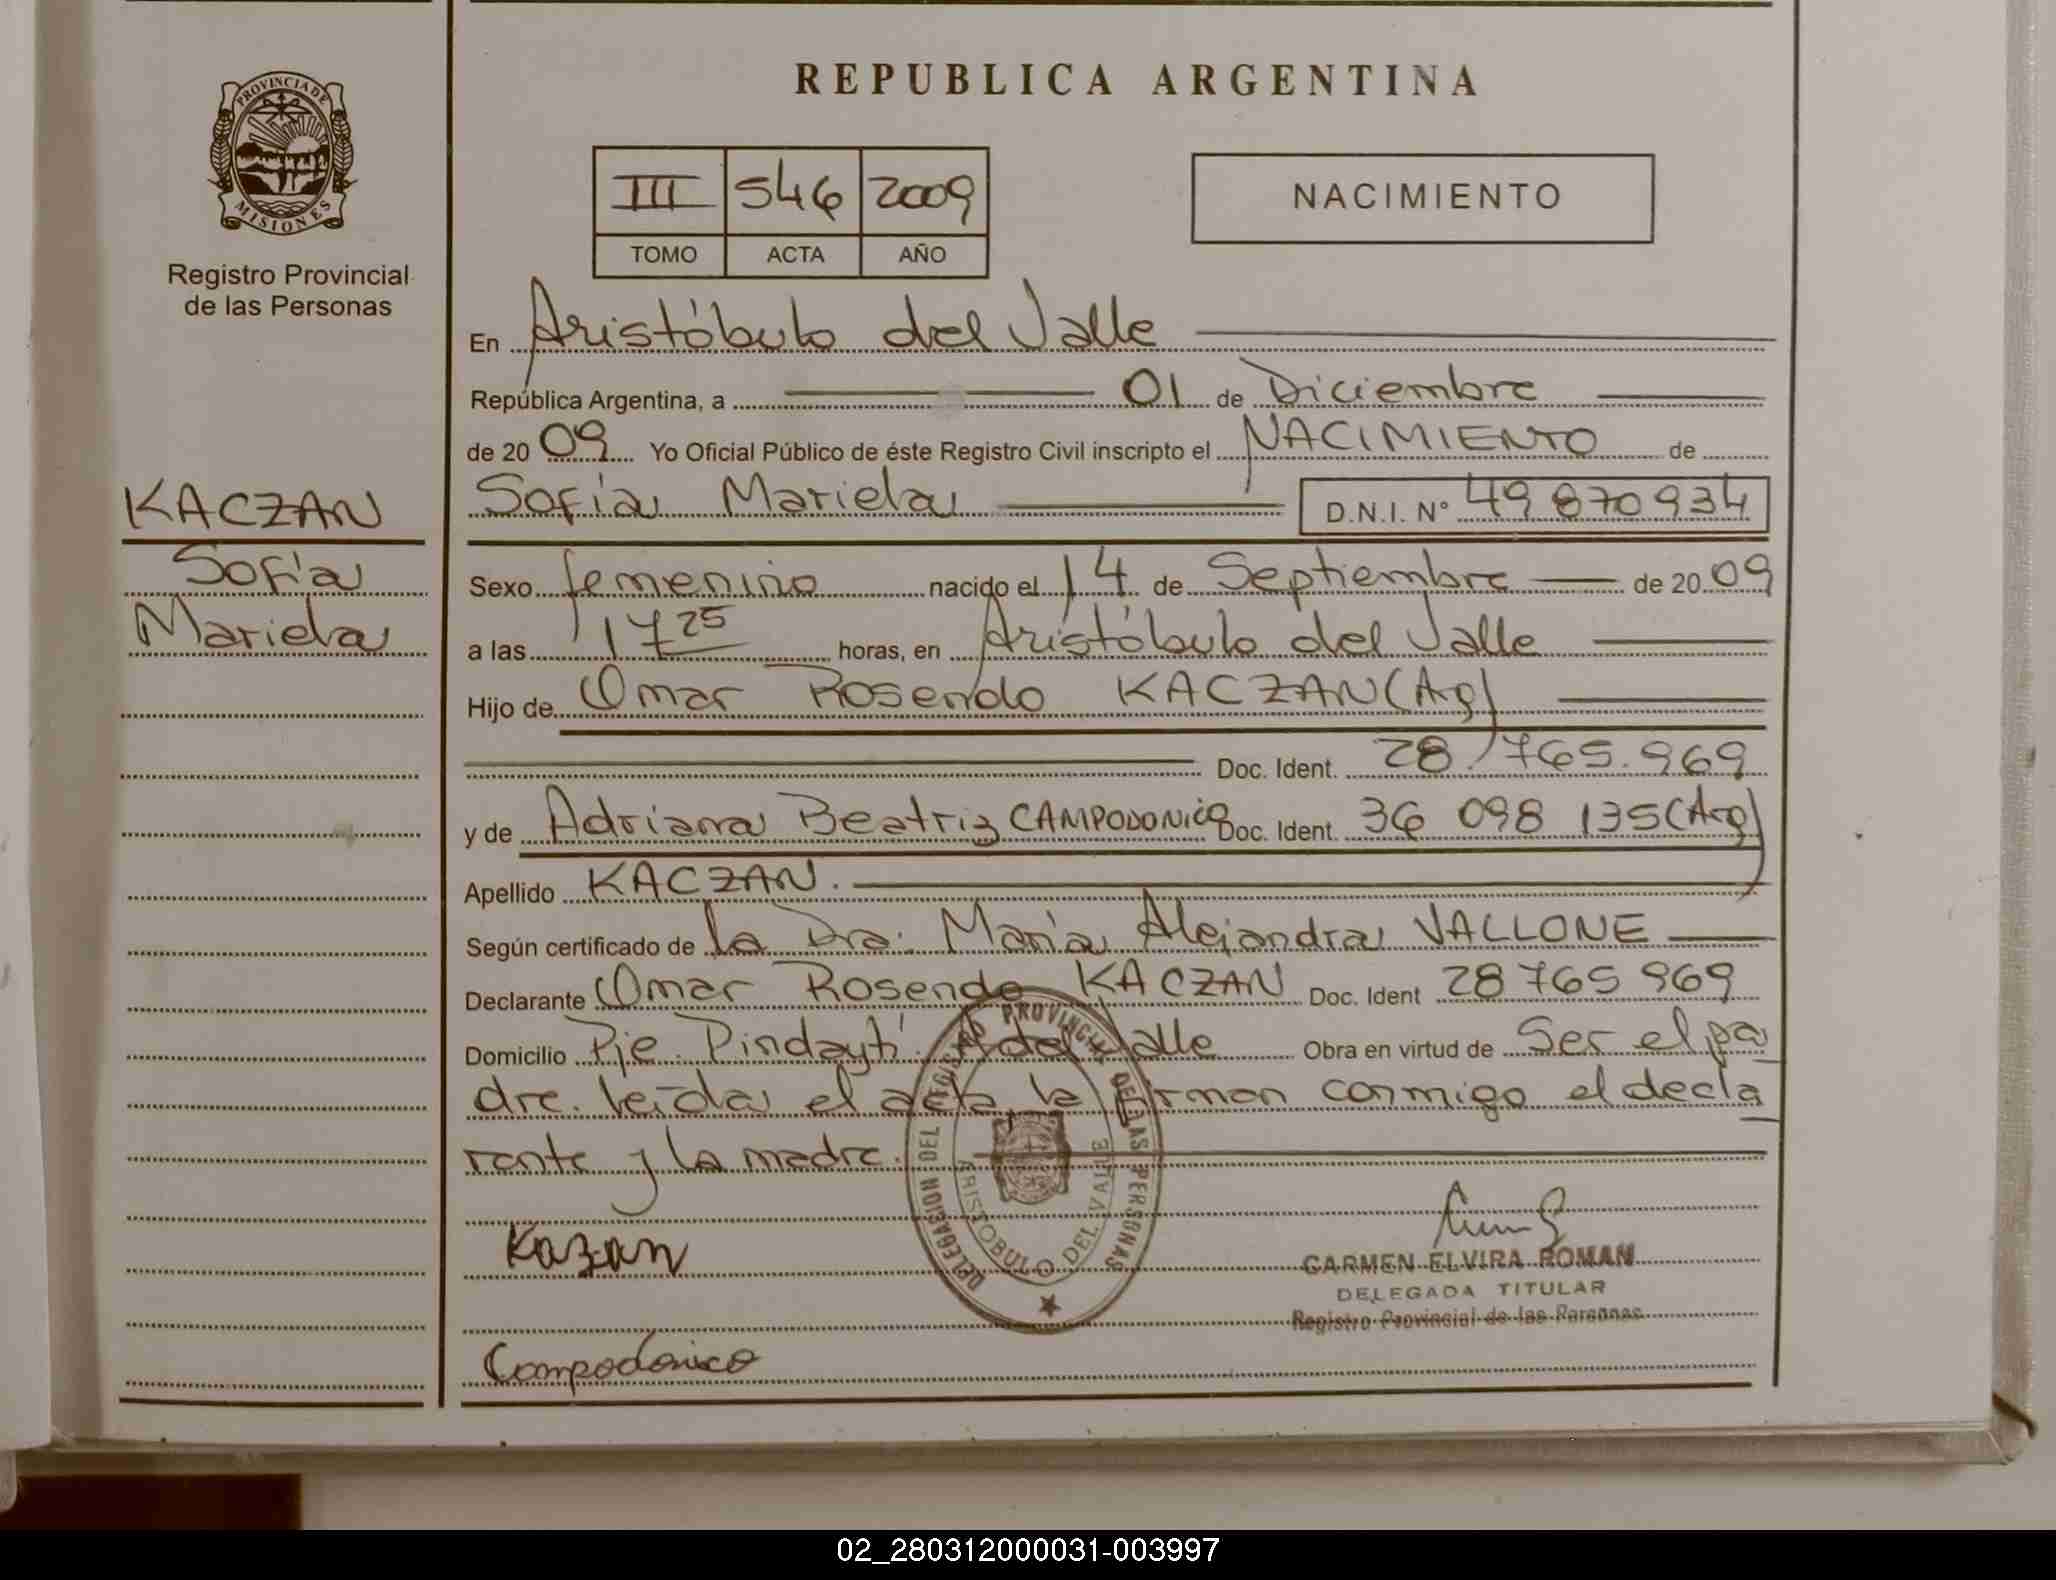 REPUBLICA ARGENTINA
PROVINCIA DE
MISIONES
Registro Provincial
de las Personas
III 546 2009
TOMO ACTA AÑO
NACIMIENTO
En Aristóbulo del Valle
República Argentina, a 01 de Diciembre
de 20 09 Yo Oficial Público de éste Registro Civil inscripto el NACIMIENTO de
KACZAN
Sofía
Mariela
Sofía Mariela D.N.I. N° 49 870 934
Sexo femenino nacido el 14 de Septiembre de 20 09
a las 17 25 horas, en Aristóbulo del Valle
Hijo de Omar Rosendo KACZAN (Arg)
Doc. Ident. 28.765.969
y de Adriana Beatriz CAMPODONICO Doc. Ident. 36 098 135 (Arg)
Apellido KACZAN.
Según certificado de la Dra. María Alejandra VALLONE
Declarante Omar Rosendo KACZAN Doc. Ident 28 765 969
Domicilio Pje. Pindaytí A del Valle Obra en virtud de Ser el pa
dre. leída el acta, la firman conmigo el decla
rante y la madre.
DELEGACION DEL REGISTRO PROVINCIAL DE LAS PERSONAS
ARISTOBULO DEL VALLE
Kazan
CARMEN ELVIRA ROMAN
DELEGADA TITULAR
Registro Provincial de las Personas
Campodonico
02_280312000031-003997